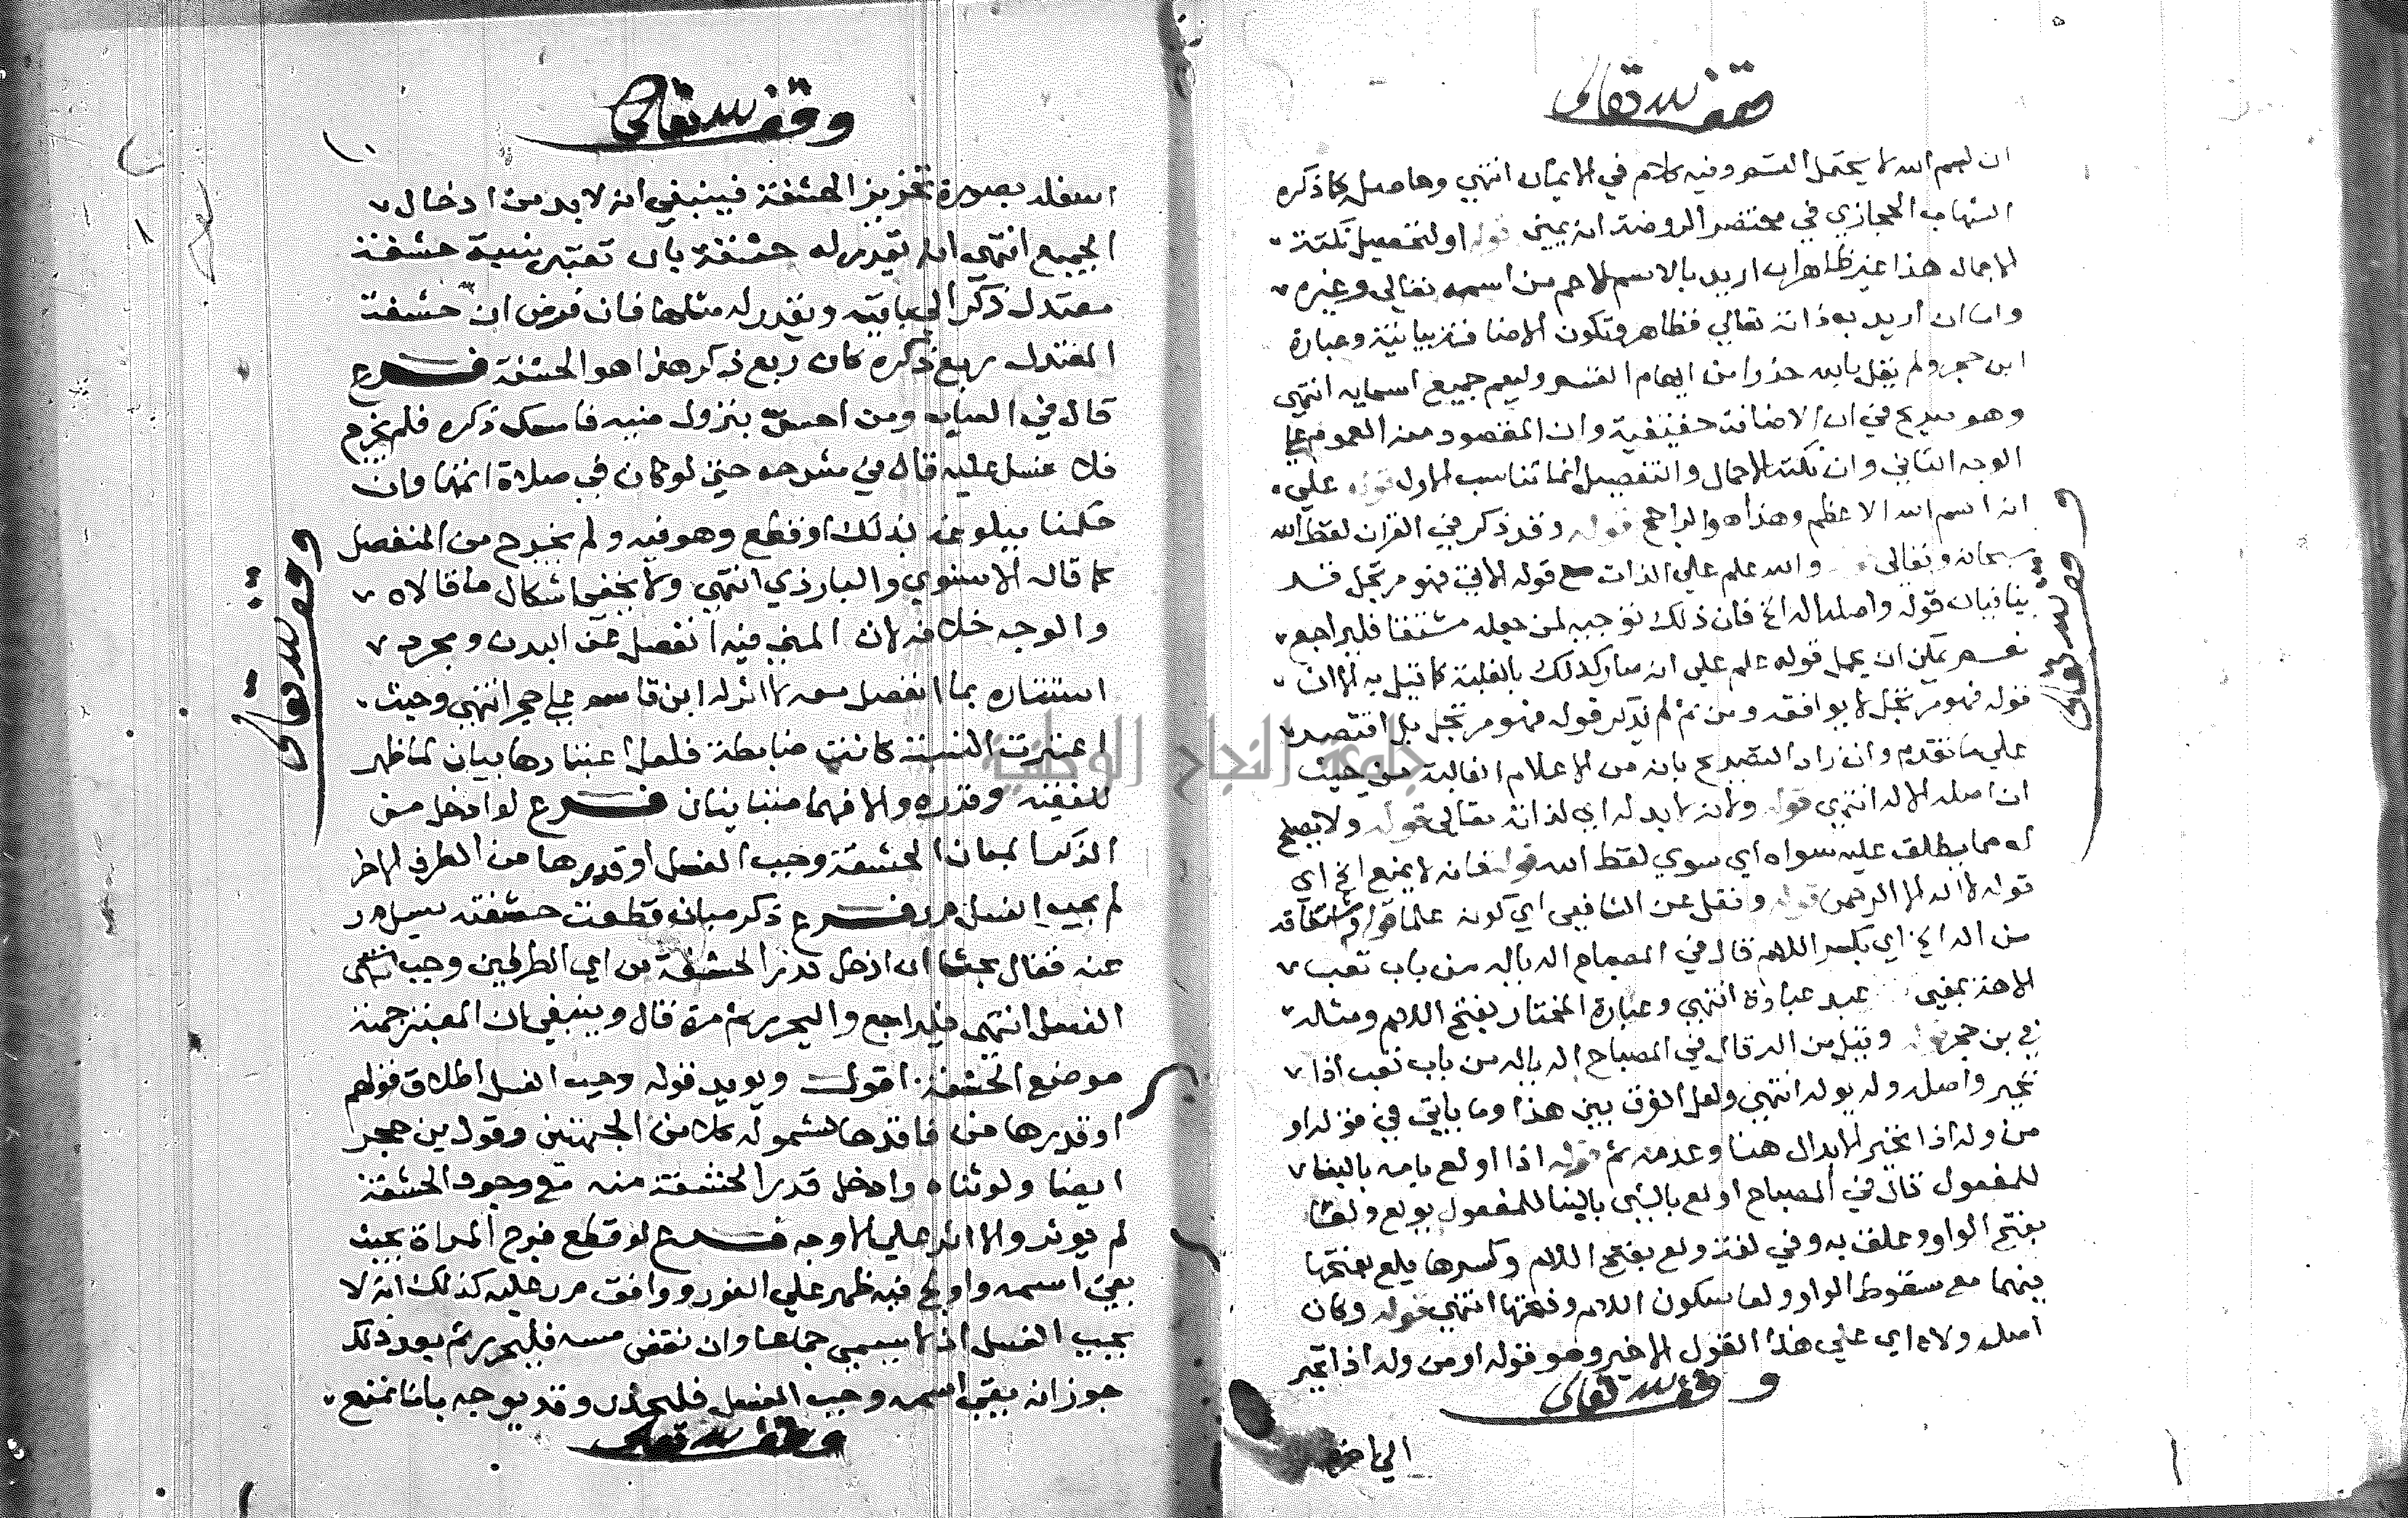 وقف لله تعالى
ان بسم الله لا يحتمل القسم وفيه كلام في الايمان انتهي وحاصل ما ذكره
الشهاب الحجازي في مختصر الروضة انه يمين قوله او لتحصيل نكتة
الاجمال هذا غير ظاهر ان اريد بالاسم الاعم من اسمه تعالي وغيره
واما ان اريد به ذاته تعالي فظاهر وتكون الاضافة بيانية وعبارة
ابن حجر ولم يقل بالله حذرا من ايهام القسم وليعم جميع اسمايه انتهي
وهو صريح في ان الاضافة حقيقية وان المقصود منه العموم علي
الوجه الثاني وان نكتة الاجمال والتفصيل انما تناسب الاول قوله علي
انه اسم الله الاعظم وهذا هو الراجح قوله وقد ذكر في القران لفظ الله
سبحانه وتعالي والله علم علي الذات مع قوله الاتي فهو مرتجل قد
ينافيان قوله واصله اله الخ فان ذلك توجيه لمن جعله مشتقا فليراجع
نعم يمكن ان يحمل قوله علم علي انه صار كذلك بالغلبة كما قيل به الا ان
قوله فهو مرتجل لا يوافقه ومن ثم لم يذكر قوله فهو مرتجل بل اقتصر
علي ما تقدم وان زاد التصريح بانه من الاعلام الغالبة من حيث
ان اصله الاله انتهي قوله ولانه لا بد له اي لذاته تعالي قوله ولا يصلح
له مما يطلق عليه سواه اي سوي لفظ الله قوله فانه لا يمنع الخ اي
قوله لا اله الا الرحمن قوله ونقل عن الشافعي اي كونه علما قوله واشتقاقه
من اله الخ اي بكسر اللام قال في المصباح اله ياله من باب تعب
الاهة بمعني عبد عبادة انتهي وعبارة المختار بفتح اللام ومثله
في بن حجر قوله وقيل من اله قال في المصباح اله ياله من باب تعب اذا
تحير واصله وله يوله انتهي ولعل الفرق بين هذا وما ياتي في قوله او
من وله اذا تحير الابدال هنا وعدمه ثم قوله اذا اولع بامه بالبنا
للمفعول قال في المصباح اولع بالشي بالبنا للمفعول يولع ولوعا
بفتح الواو وعلق به وفي لغة ولع بفتح اللام وكسرها يلع بفتحها
فيهما مع سقوط الواو ولعا بسكون اللام وفتحها انتهي قوله وكان
اصله ولاه اي علي هذا القول الاخير وهو قوله او من وله اذا تحير
وقف لله تعالى
وقف لله تعالى
وقف لله تعالى
اسفله بصورة تحزيز الحشفة فينبغي انه لا بد من ادخال
الجميع انتهي انه تقدر له حشفة بان تعتبر بنسبة حشفة
معتدل ذكر الي باقيه ونقدر له مثلها فان فرض ان حشفة
المعتدل ربع ذكره كان ربع ذكر هذا هو الحشفة فرع
قال في العباب ومن احس بنزول منيه فامسك ذكره فلم يخرج
فلا غسل عليه قال في شرحه حتي لو كان في صلاة اتمها وان
حكمنا ببلوغه بذلك او قطع وهو فيه ولم يخرج من المنفصل
كما قاله الاسنوي والبارزي انتهي ولا يخفي اشكال ما قالاه
والوجه خلافه لان المني فيه انفصل عن البدن ومجرد
استتاره بما انفصل معه لا اثر له ابن قاسم علي حجر انتهي وحيث
اعتبرت النسبة كانت ضابطة فلعل اعتبارها بيان لما ظهر
للفقيه وقدره والا فهما متباينان فرع لو ادخل من
الذكر المبان الحشفة وجب الغسل او قدرها من الطرف الاخر
لم يجب الغسل م ر فرع ذكر مبان قطعت حشفته سئل م ر
عنه فقال بحثا ان ادخل قدر الحشفة من اي الطرفين وجب
الغسل انتهي فليراجع واليحرر ثم مرة قال وينبغي ان المعتبر جهة
موضع الحشفة اقول ويويد قوله وجب الغسل اطلاق قولهم
او قدرها من فاقدها لشموله كلا من الجهتين وقول بن حجر
ايضا ولو ثناه وادخل قدر الحشفة منه مع وجود الحشفة
لم يوثر والا اثر علي الاوجه فرع لو قطع فرج المراة بحيث
بقي اسمه واولج فيه ظهر علي الفور ووافق م ر عليه كذلك انه لا
يجب الغسل اذ لا يسمي جماعا وان نقض مسه فليحرر ثم بعد ذلك
جوز انه بقي اسمه وجب الغسل فليحذر وقد يوجه بانا نمنع
وقف لله تعالى
وقف لله تعالى
جامعة النجاح الوطنية